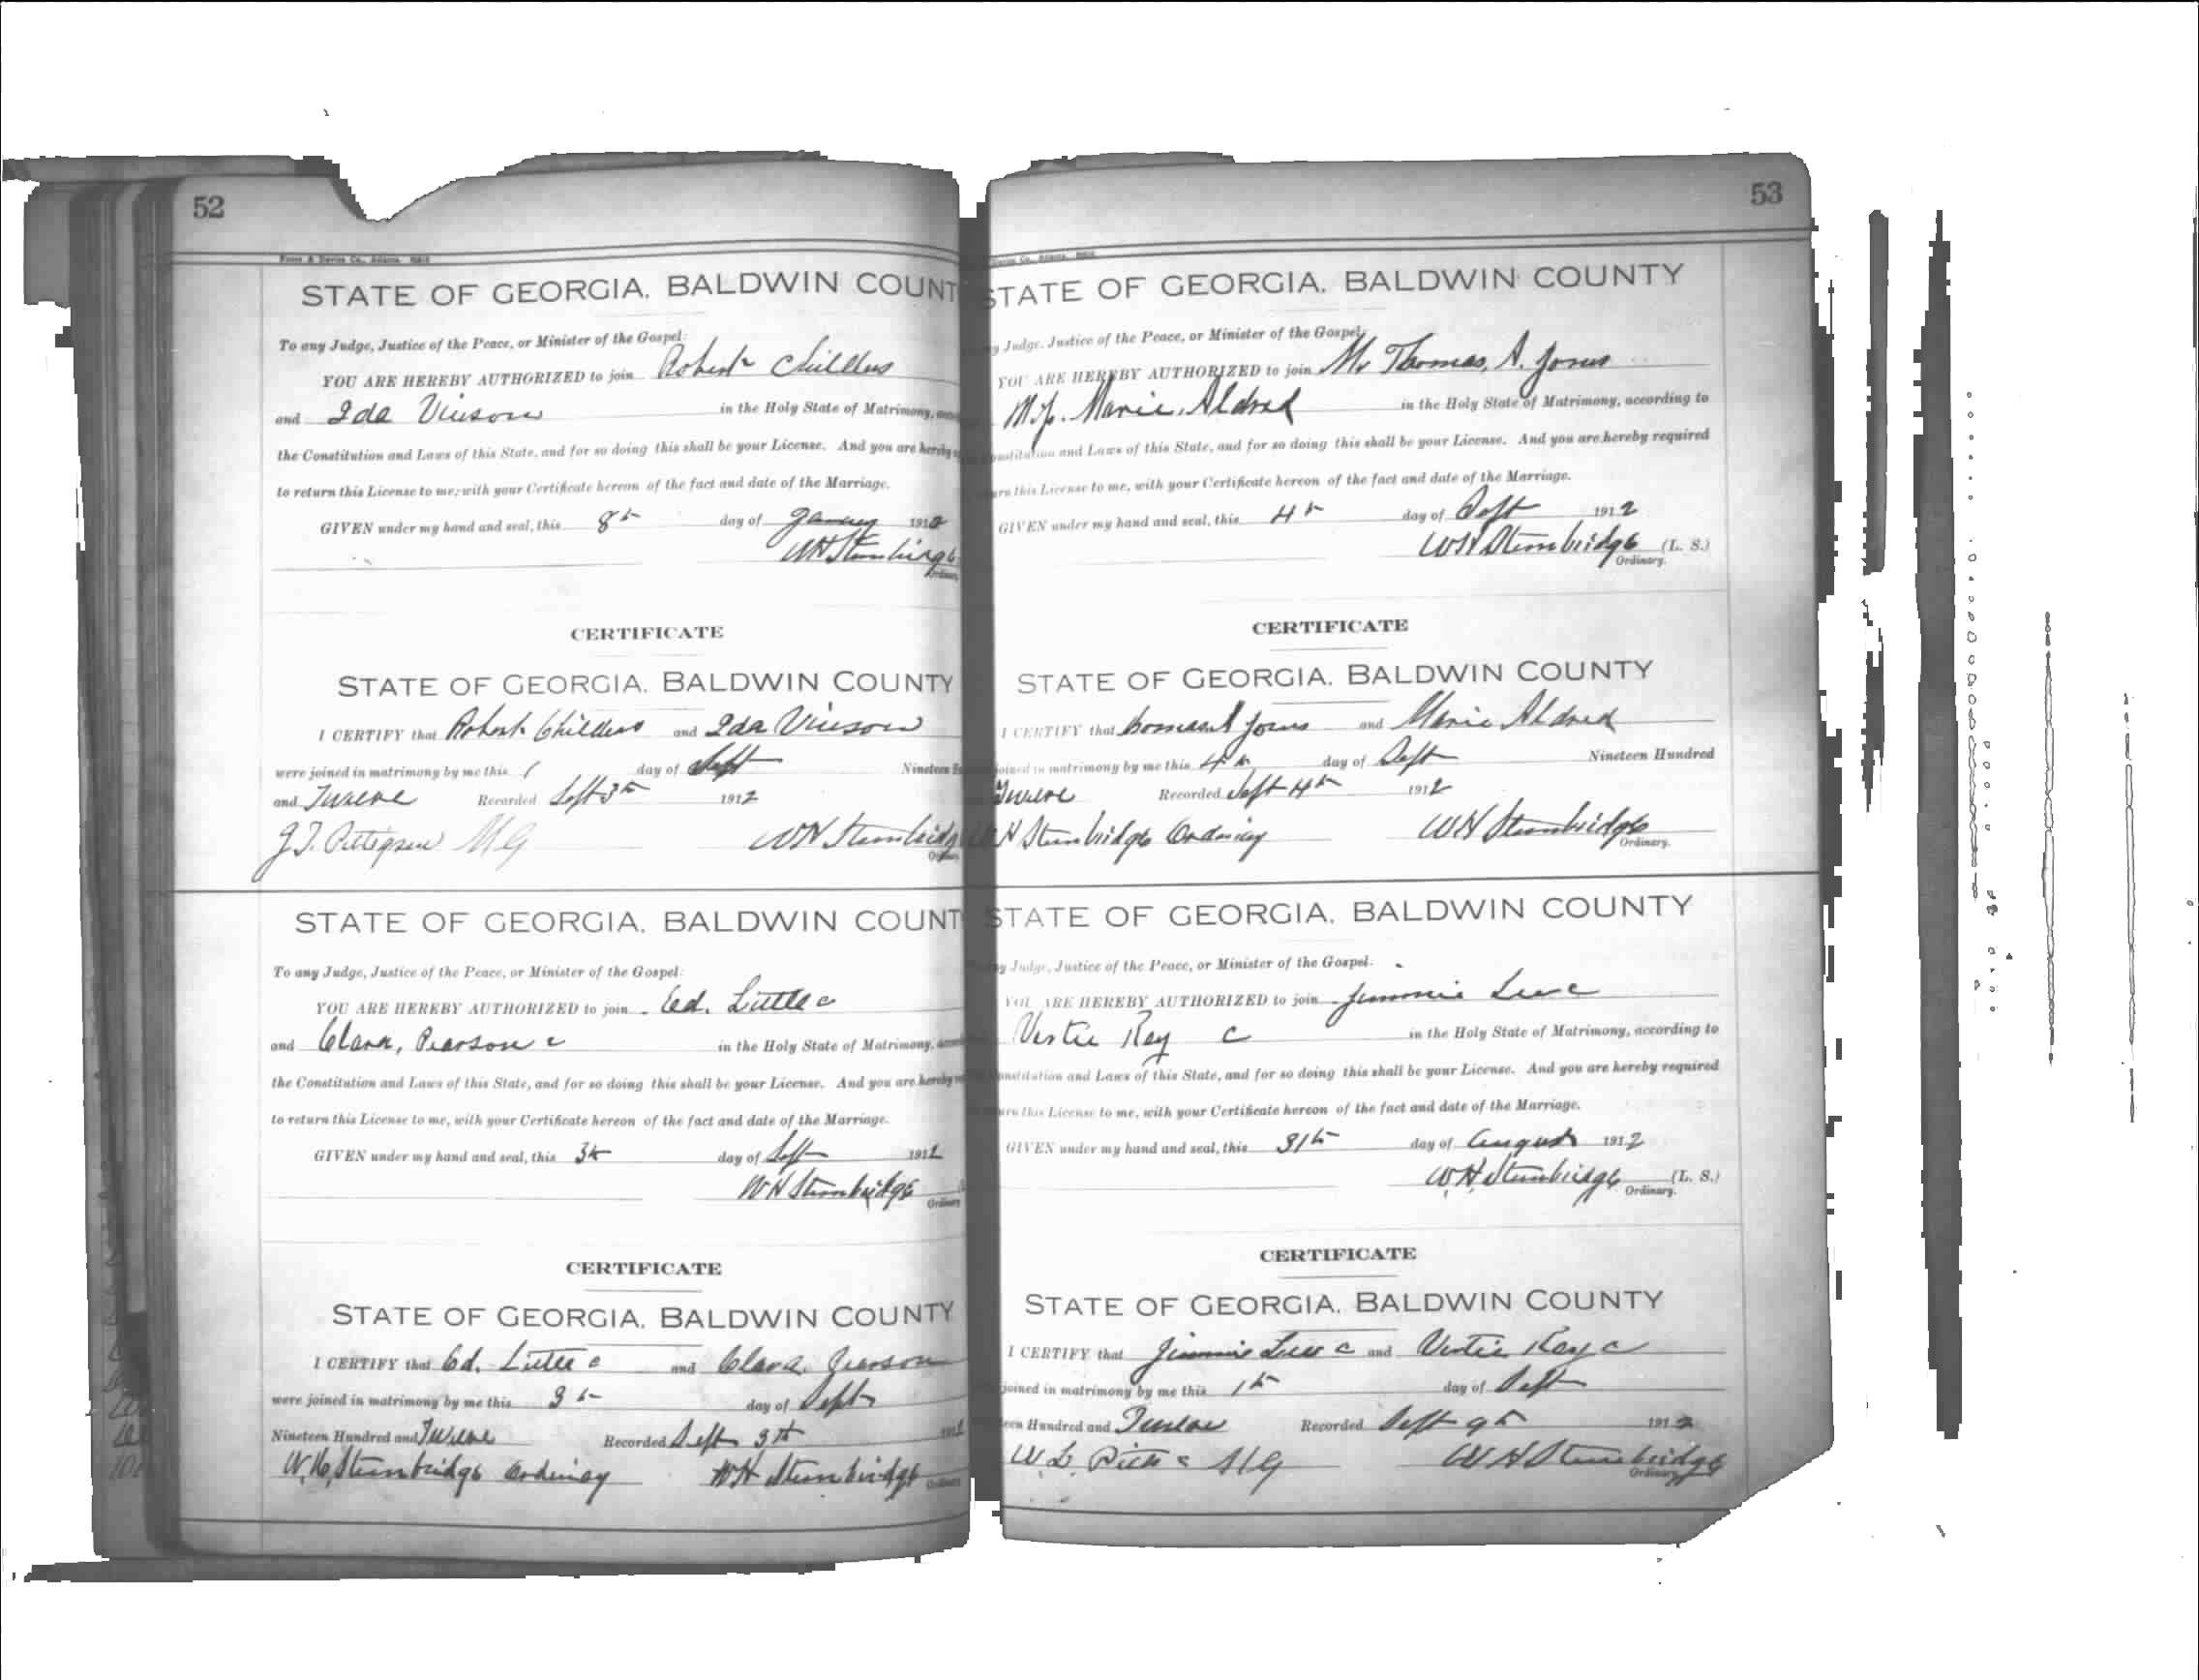 52
STATE OF GEORGIA. BALDWIN COUNT
To any Judge, Justice of the Peace, or Minister of the Gospel:
YOU ARE HEREBY AUTHORIZED to join Robert Childers
and Ida Vinson in the Holy State of Matrimony,
the Constitution and Laws of this State, and for so doing this shall be your License. And you are hereby
to return this License to me, with your Certificate hereon of the fact and date of the Marriage.
GIVEN under my hand and seal, this 8th day of January 1912
WH Stembridge
CERTIFICATE
STATE OF GEORGIA. BALDWIN COUNTY
I CERTIFY that Robert Childers and Ida Vinson
were joined in matrimony by me this 1 day of Sept Nineteen
and Twelve Recorded Sept 3th 1912
J.T. MG WH Stembridge
STATE OF GEORGIA. BALDWIN COUNT
To any Judge, Justice of the Peace, or Minister of the Gospel:
YOU ARE HEREBY AUTHORIZED to join Ed. Little c
and Clara, Pearson c in the Holy State of Matrimony,
the Constitution and Laws of this State, and for so doing this shall be your License. And you are hereby
to return this License to me, with your Certificate hereon of the fact and date of the Marriage.
GIVEN under my hand and seal, this 3th day of Sept 1912
WH Stembridge
Ordinary
CERTIFICATE
STATE OF GEORGIA. BALDWIN COUNTY
I CERTIFY that Ed. Little c and Clara. Pearson
were joined in matrimony by me this 3th day of Sept
Nineteen Hundred and Twelve Recorded Sept 3th 1912
W.H. Stembridge Ordinary WH Stembridge
53
STATE OF GEORGIA. BALDWIN COUNTY
Judge, Justice of the Peace, or Minister of the Gospel:
YOU ARE HEREBY AUTHORIZED to join Mr Thomas. A. Jones
Marie. Aldred in the Holy State of Matrimony, according to
and Laws of this State, and for so doing this shall be your License. And you are hereby required
this License to me, with your Certificate hereon of the fact and date of the Marriage.
GIVEN under my hand and seal, this 4th day of Sept 1912
WH Stembridge (L. S.)
Ordinary.
CERTIFICATE
STATE OF GEORGIA. BALDWIN COUNTY
I CERTIFY that Jones and Marie Aldred
joined in matrimony by me this 4th day of Sept Nineteen Hundred
Twelve Recorded Sept 4th 1912
WH Stembridge Ordinary WH Stembridge
Ordinary.
STATE OF GEORGIA. BALDWIN COUNTY
Judge, Justice of the Peace, or Minister of the Gospel:
YOU ARE HEREBY AUTHORIZED to join Jimmie Lee c
Vertie Ray C in the Holy State of Matrimony, according to
and Laws of this State, and for so doing this shall be your License. And you are hereby required
this License to me, with your Certificate hereon of the fact and date of the Marriage.
GIVEN under my hand and seal, this 31th day of August 1912
W.H. Stembridge (L. S.)
Ordinary.
CERTIFICATE
STATE OF GEORGIA. BALDWIN COUNTY
I CERTIFY that Jimmie Lee c and Vertie Ray c
joined in matrimony by me this 1th day of Sept
Hundred and Twelve Recorded Sept 9th 1912
MG WH Stembridge
Ordinary